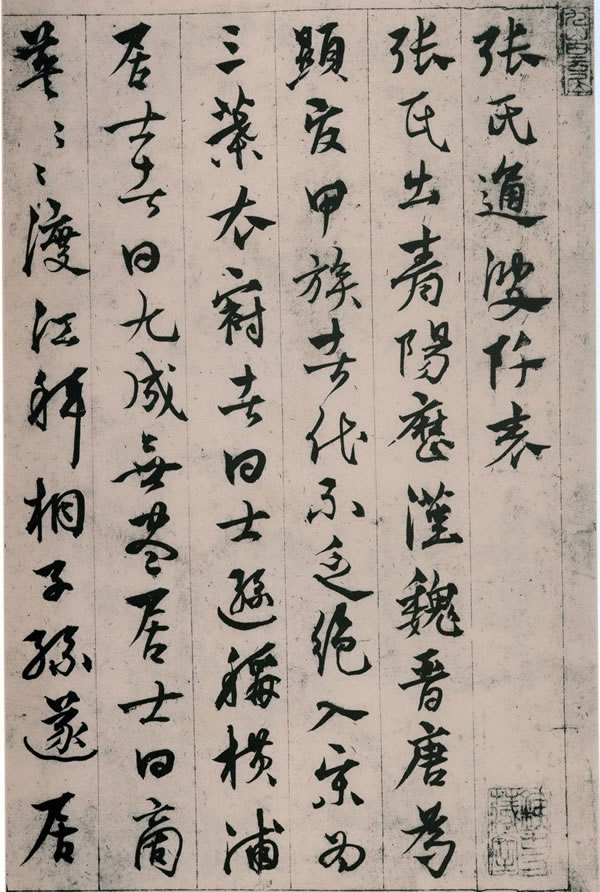 張氏通波阡表
張氏出青陽歷漢魏晉唐爲
顯官甲族者代不乏絕入宋爲
三葉衣冠者曰士遜稱橫浦
居士者曰九成無盡居士曰商
英〻〻渡江拜相子孫遂居